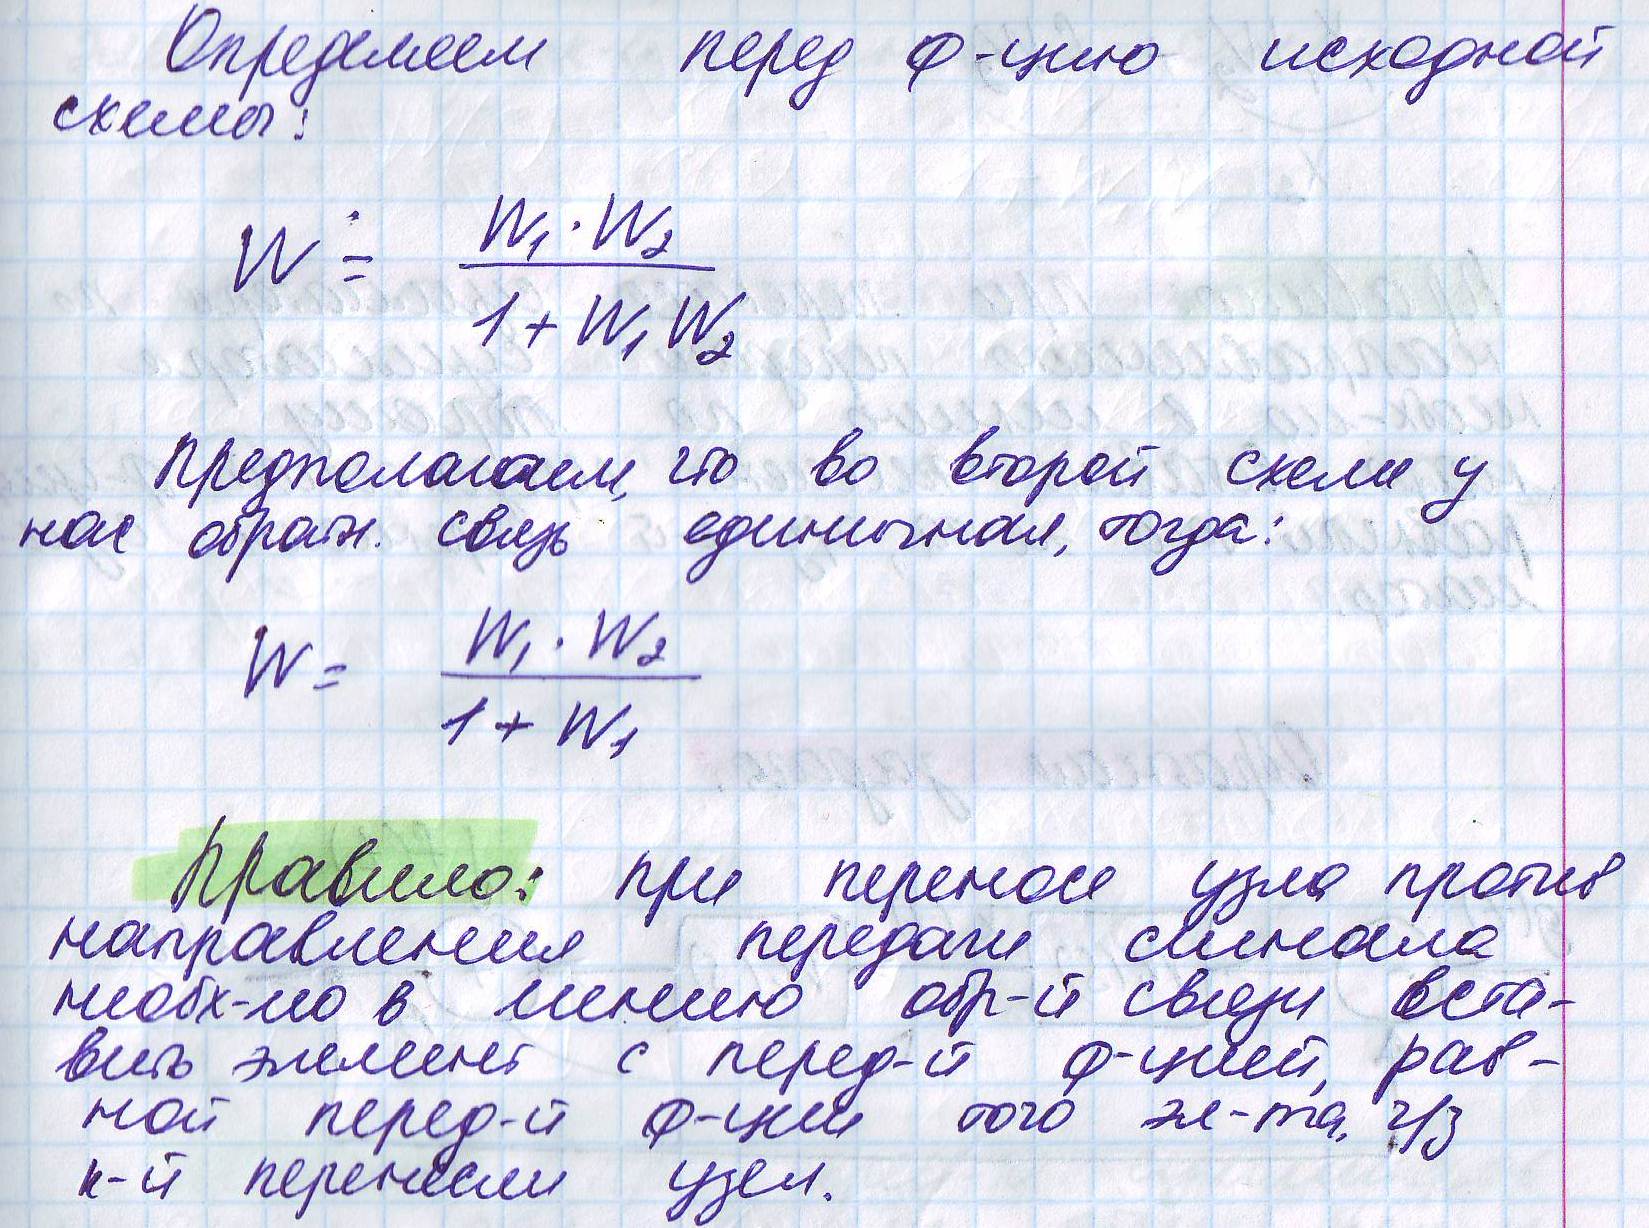 Определяем перед ф-цию исходной
схемы:
W = W₁·W₂ / 1+W₁W₂
Предполагаем, что во второй схеме у
нас обратн. связь единичная, тогда:
W = W₁·W₂ / 1+W₁
Правило: при переносе узла против
направления передачи сигнала
необх-мо в линию обр-й связи вста-
вить элемент с перед-й ф-цией, рав-
ной перед-й ф-ции того эл-та, ч/з
к-й перенесли узел.